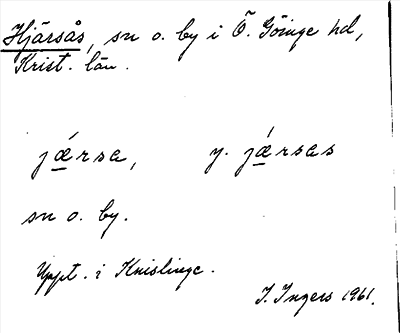 Hjärsås, sn o. by i Ö. Göinge hd,
Krist. län.
jǽrsa, y. jǽrsas
sn o. by.
Uppt. i Knislinge.
I. Ingers 1961.